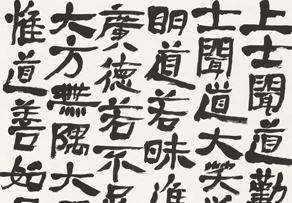 上士聞道勤
士聞道大笑
明道若昧進
廣德若不足
大方無隅大
惟道善始